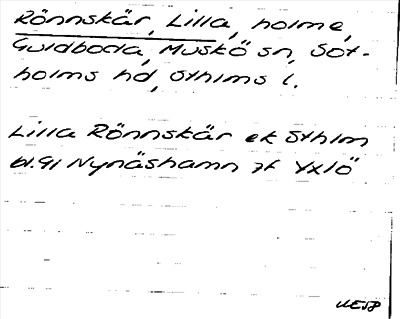 Rönnskär, Lilla, holme,
Guldboda, Muskö sn, Sot-
holms hd, Sthlms l.
Lilla Rönnskär ek Sthlm
bl. 91 Nynäshamn jk Yxlö